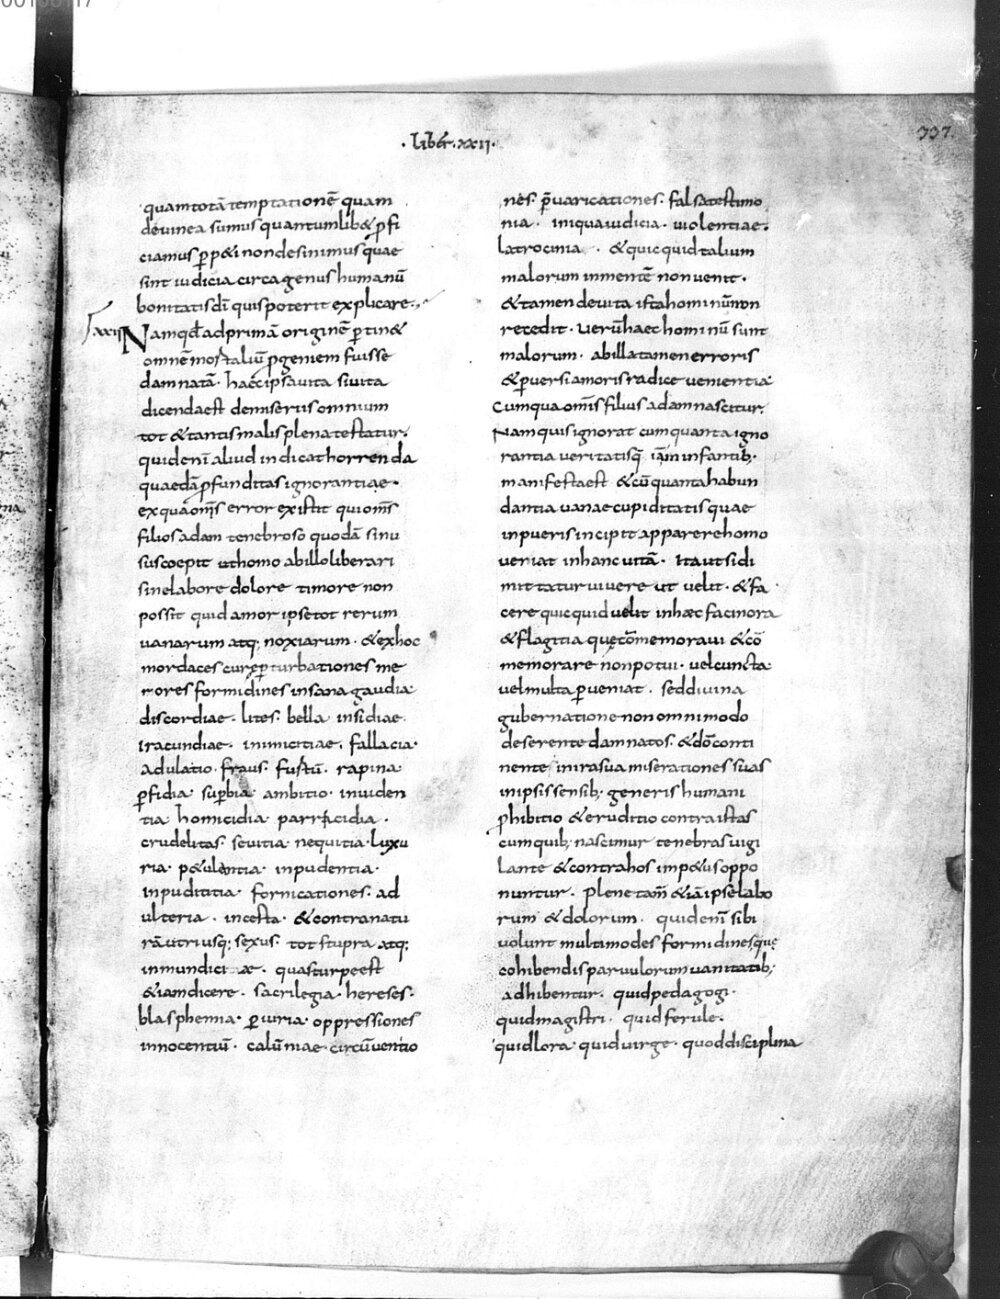 · liber · xxii ·
337.
quam totā temptationē quam
devinea sumus quantumlib& p̱fi
ciamus p̱p&i non desinimus quae
sint iudicia circa genus humanū
bonitatis dī quis poterit explicare.
xxii Namq̄d ad primā originē p̱tin&
omnē mortaliū p̱geniem fuisse
damnatā· haec ipsa vita si vita
dicenda est de miseriis omnium
tot & tantis malis plena testatur.
quid enī aliud indicat horrenda
quaedā p̱funditas ignorantiae·
ex qua om̄s error existit qui om̄s
filios adam tenebroso quodā sinu
suscoepit ut homo ab illo liberari
sine labore dolore timore non
possit quid amor ipse tot rerum
vanarum atq; noxiarum· & ex hoc
mordaces curę p̱turbationes me
rores formidines insana gaudia
discordiae· lites· bella insidiae·
Iracundiae· inimicitiae· fallacia·
adulatio· fraus· furtū· rapina·
p̱fidia sup̱bia ambitio· inviden
tia homicidia parricidia·
crudelitas· sevitia nequitia· luxu
ria· p&ulentia· inpudentia·
inpudititia fornicationes· ad
ulteria· incesta· & contra natu
rā utriusq; sexus· tot stupra atq;
inmundiciae· quas turpe est
& iam dicere· sacrilegia· hereses·
blasphemia· p̱iuria· oppressiones
innocentiū· calūniae· circūventio
nes· p̄varicationes· falsa testimo
nia· iniqua iudicia· violentiae·
latrocinia· & quicquid talium
malorum in mentē non venit·
& tamen de vita ista hominū non
recedit· verū haec hominū sunt
malorum· ab illa tamen erroris
& p̱versi amoris radice venientia
cum qua om̄is filius adam nascitur·
Nam quis ignorat cum quanta igno
rantia veritatis q̄ iam infantib;
manifesta est & cū quanta habun
dantia vanae cupiditatis quae
in pueris incipit apparere homo
veniat in hanc vitā· Ita ut si di
mittatur vivere ut velit· & fa
cere quicquid velit in haec facinora
& flagitia quę cōmemoravi & cō
memorare non potui· vel cuncta
vel multa p̱veniat· sed divina
gubernatione non omnimodo
deserente damnatos· & dō conti
nente in ira sua miserationes suas
in ipsis sensib; generis humani
p̱hibitio & eruditio contra istas
cum quib; nascimur tenebras vigi
lant & contra hos imp&us oppo
nuntur· plene tam̄ & iā ipse labo
rum & dolorum· quid enī sibi
volunt multimodes formidines quę
cohibendis parvulorum vanitatib;
adhibentur· quid pedagogi·
quid magistri· quid ferule·
quid lora· quid virge· quod disciplina